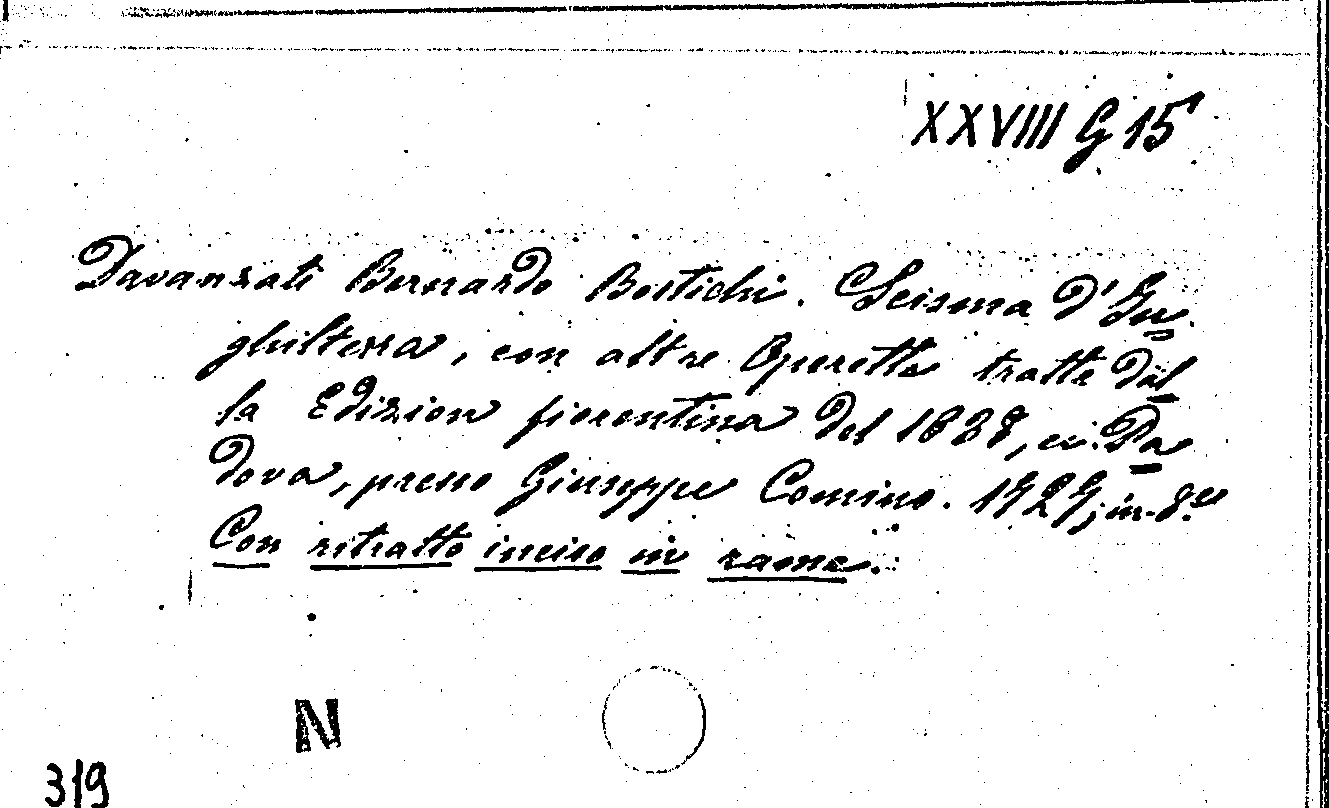 XXVIII G 15
Davanzati Bernardo Bostichi. Scisma d'In-
ghilterra, con altre Operette tratte dal
la Edizion fiorentina del 1638, in Pa
dova, presso Giuseppe Comino. 1727, in-8.º
Con ritratto inciso in rame.
N
319